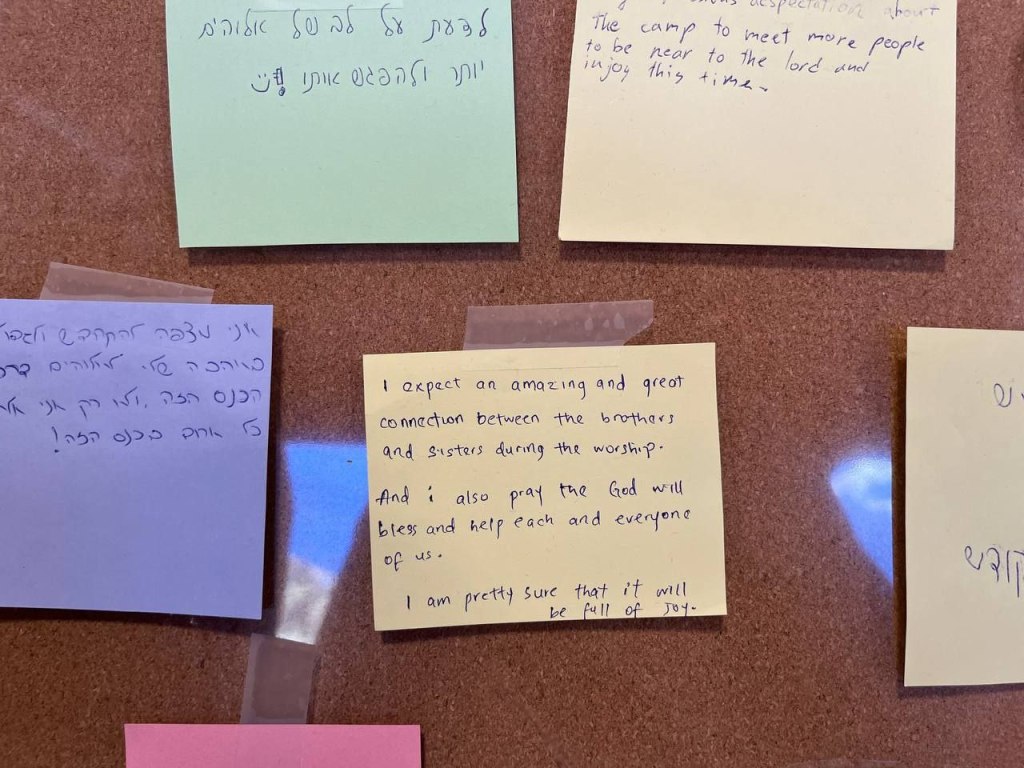 לדעת על לב של אלוהים
יותר ולהפגש אותו !
about
The camp to meet more people
to be near to the lord and
injoy this time.
אני מצפה להתקדש
באהבה שלי לאלוהים
הכנס הזה. ולו רק אני
כל אחד בכנס הזה!
I expect an amazing and great
connection between the brothers
and sisters during the worship.
And i also pray the God will
bless and help each and everyone
of us.
I am pretty sure that it will
be full of joy.